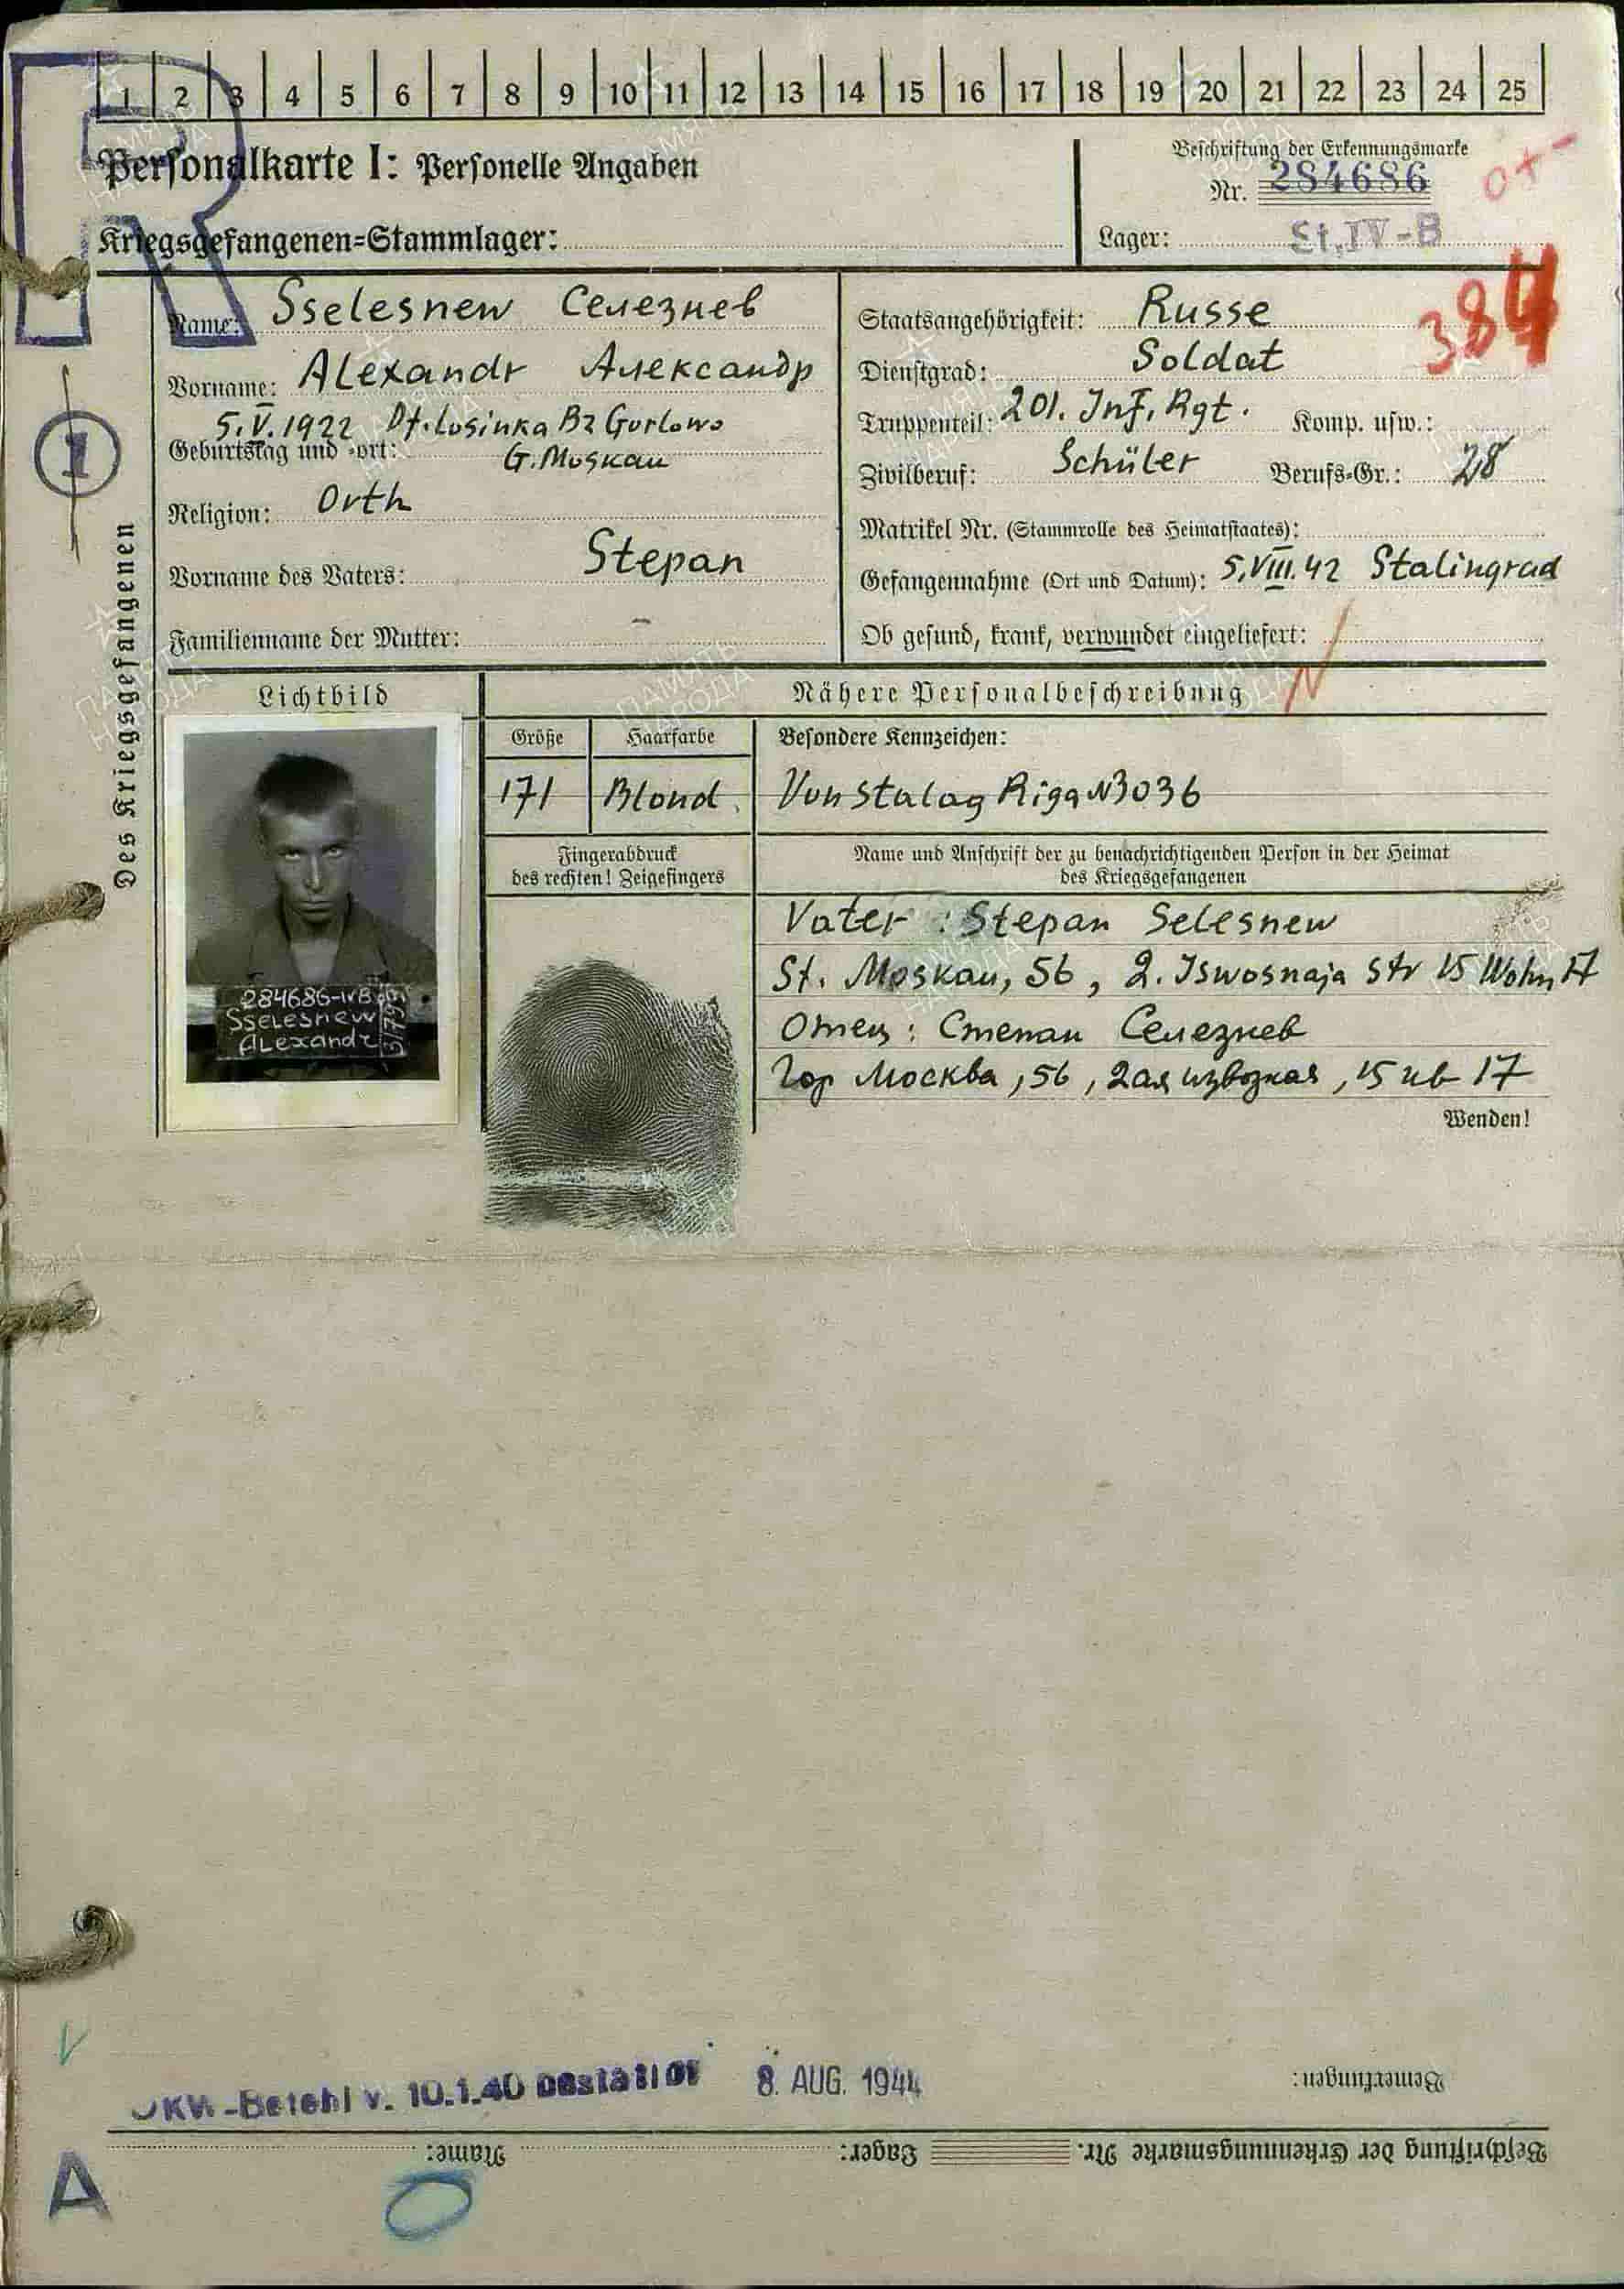 1 2 3 4 5 6 7 8 9 10 11 12 13 14 15 16 17 18 19 20 21 22 23 24 25
Personalkarte I: Personelle Angaben
Kriegsgefangenen=Stammlager:
Beschriftung der Erkennungsmarke
Nr. 284686
Lager: St. IV-B
384
Des Kriegsgefangenen
1
Name: Sselesnew Селезнев
Vorname: Alexandr Александр
5.V.1922 Df. Lusinka Bz Gorlowo
Geburtstag und -ort: G. Moskau
Religion: Orth
Vorname des Vaters: Stepan
Familienname der Mutter: –
Staatsangehörigkeit: Russe
Dienstgrad: Soldat
Truppenteil: 201. Inf. Rgt. Komp. usw.:
Zivilberuf: Schüler Berufs-Gr.: 28
Matrikel Nr. (Stammrolle des Heimatstaates):
Gefangennahme (Ort und Datum): 5.VIII.42 Stalingrad
Ob gesund, krank, verwundet eingeliefert:
Lichtbild
284686-IVB
Sselesnew
Alexandr
Nähere Personalbeschreibung
Größe Haarfarbe Besondere Kennzeichen:
171 Blond Von Stalag Riga N3036
Fingerabdruck
des rechten! Zeigefingers
Name und Anschrift der zu benachrichtigenden Person in der Heimat
des Kriegsgefangenen
Vater : Stepan Selesnew
St. Moskau, 56, 2. Iswosnaja Str 15 Wohn 17
Отец : Степан Селезнев
Гор Москва, 56, 2ая извозная, 15 кв 17
Wenden!
OKW-Befehl v. 10.1.40 8. AUG. 1944
Bemerkungen:
Beschriftung der Erkennungsmarke Nr. Lager: Name:
A